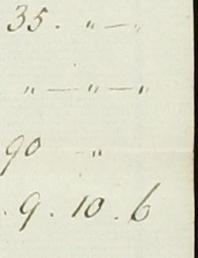 35. " — "
" — " — "
90 "
. 9. 10. 6